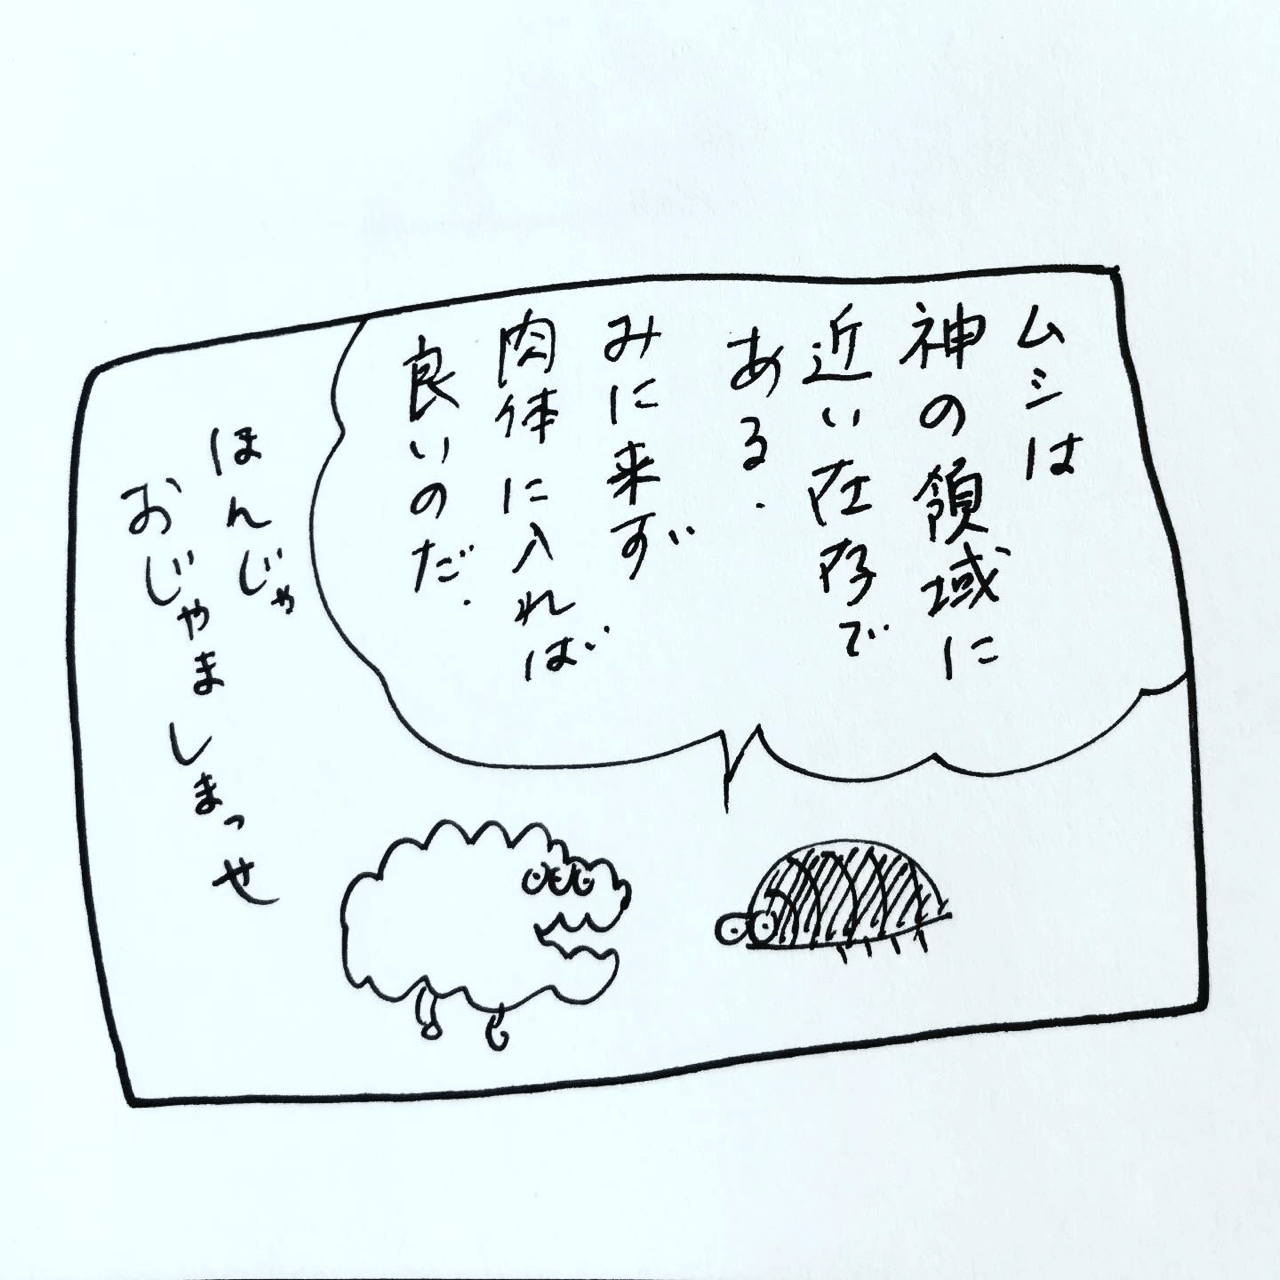 ムシは
神の領域に
近い存在で
ある.
みに来ず
肉体に入れば
良いのだ.
ほんじゃ
おじゃましまっせ